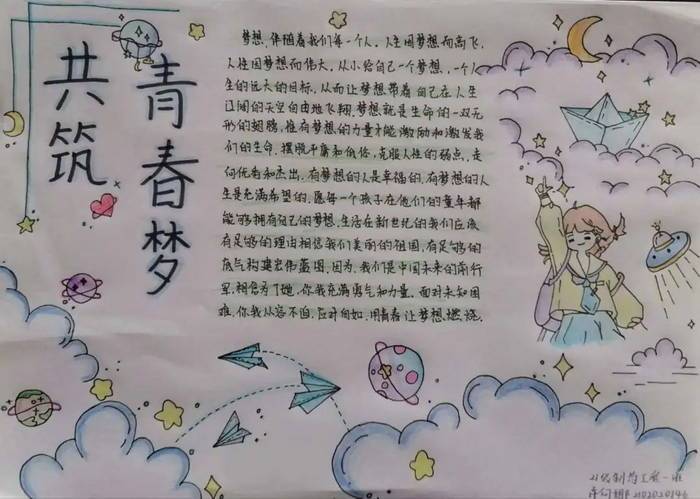 共筑
青春梦
梦想，伴随着我们每一个人。人生因梦想而高飞，
人性因梦想而伟大。从小给自己一个梦想，一个人
生的远大的目标，从而让梦想带着自己在人生
辽阔的天空自由地飞翔。梦想就是生命的一双无
形的翅膀，惟有梦想的力量才能激励和激发我
们的生命，摆脱平庸和低俗，克服人性的弱点，走
向优秀和杰出。有梦想的人是幸福的，有梦想的人
生是充满希望的。愿每一个孩子在他们的童年都
能够拥有自己的梦想。生活在新世纪的我们应该
有足够的理由相信我们美丽的祖国，有足够的
底气构建宏伟蓝图，因为，我们是中国未来的前行
军。相信为了她，你我充满勇气和力量。面对未知困
难，你我从容不迫，应对自如。用青春让梦想燃烧。